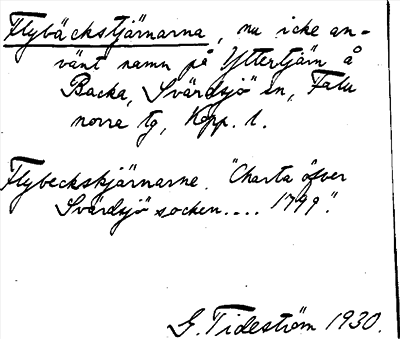 Flybäckstjärnarna, nu icke an-
vänt namn på Yttertjärn å
Backa, Svärdsjö sn, Falu
norra tg, Kopp. l.
Flybeckskjärnarne. "Charta öfver
Svärdsjö socken.... 1799".
G. Tideström 1930.